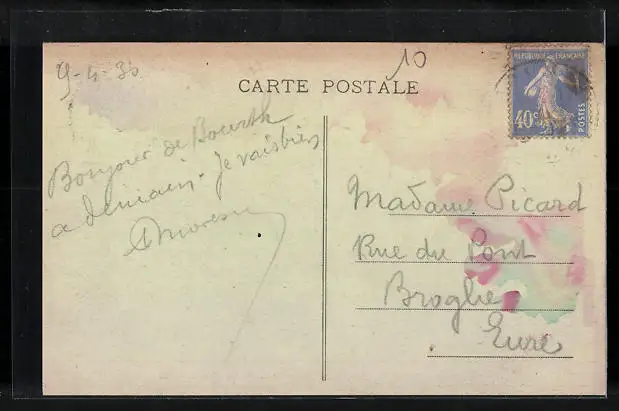 9-4-30
10
CARTE POSTALE
REPUBLIQUE FRANÇAISE
40c
POSTES
Bonjour de Bourth
a demain. Je vais bien
Madame Picard
Rue du Pont
Broglie
Eure